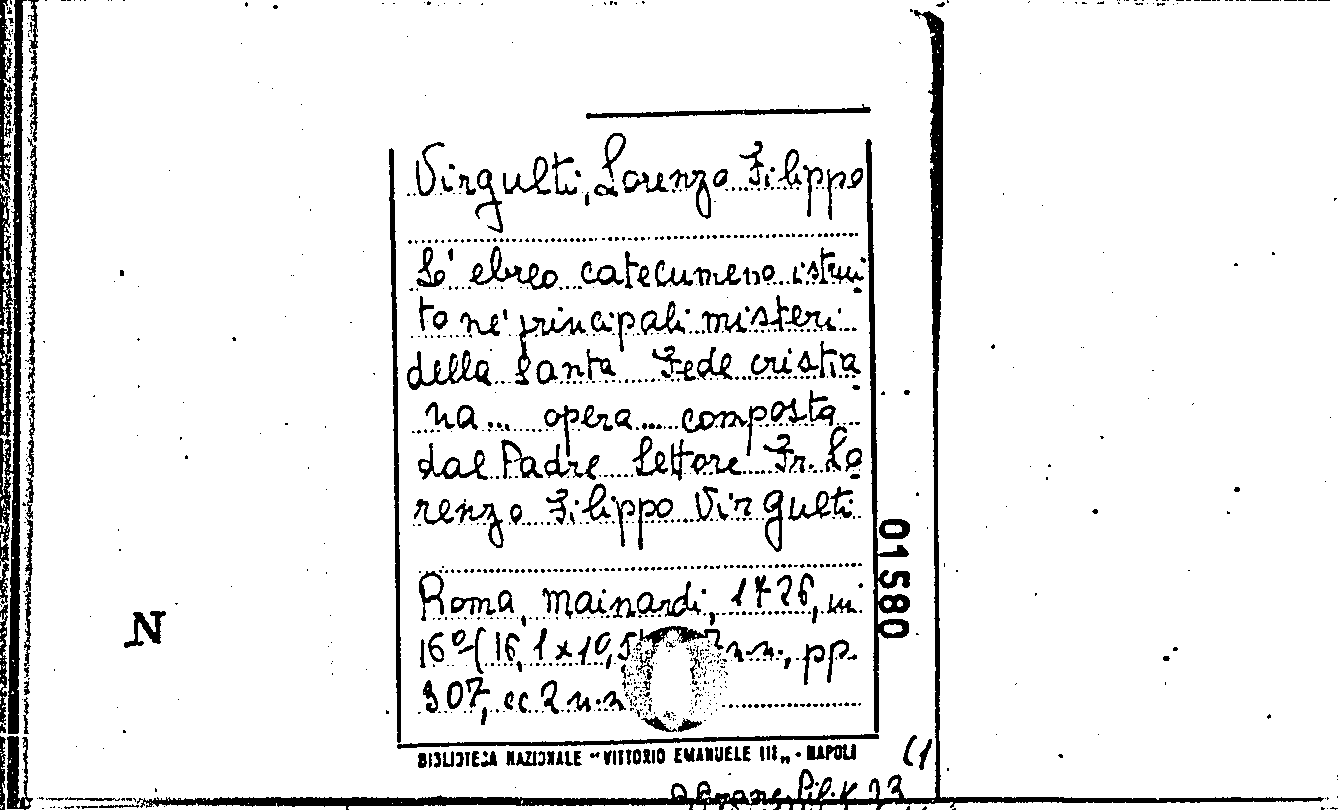 Virgulti, Lorenzo Filippo
Lo' ebreo catecumeno istrui-
to ne' principali misteri
della Santa Fede cristia-
na... opera... composta
dal Padre Lettore Fr. Lo-
renzo Filippo Virgulti
Roma, Mainardi, 1726, in
16º (16,1x10,5 n.n., pp.
307, cc 2 n.n
BIBLIOTECA NAZIONALE "VITTORIO EMANUELE III„ - NAPOLI
01580
N
(1